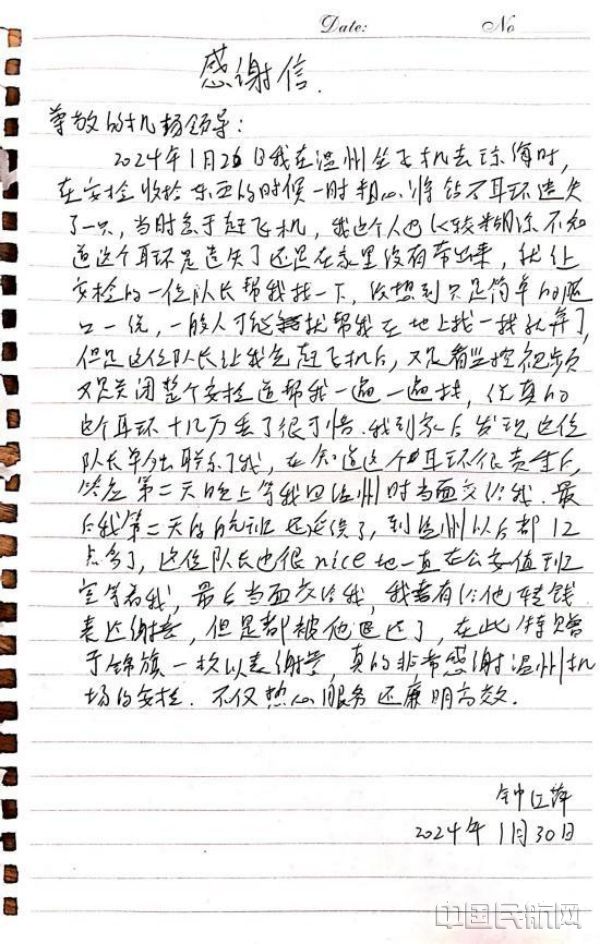 Date: No
感谢信.
尊敬的机场领导:
2024年1月26日我在温州坐飞机去珠海时,
在安检收拾东西的时候一时粗心将钻石耳环遗失
了一只,当时急于赶飞机,我这个人也比较糊涂不知
道这个耳环是遗失了还是在家里没有带出来,就让
安检的一位队长帮我找一下,没想到只是简单的随
口一说,一般人可能就帮我在地上找一找就算了,
但是这位队长让我先赶飞机后,又是看监控视频
又是关闭整个安检道帮我一遍一遍找,仿真的
这个耳环十几万丢了很可惜.我到家后发现这位
队长单独联系了我,在知道这个耳环很贵重后,
答应第二天晚上等我回温州时当面交给我.最
后我第二天的航班也延误了,到温州以后都12
点多了,这位队长也很nice地一直在公安值班
室等着我,最后当面交给我,我想着有给他转钱
表达谢意,但是都被他退还了,在此特赠
予锦旗一枚以表谢意,真的非常感谢温州机
场的安检.不仅热心服务还廉明高效.
钟江萍
2024年1月30日
中国民航网